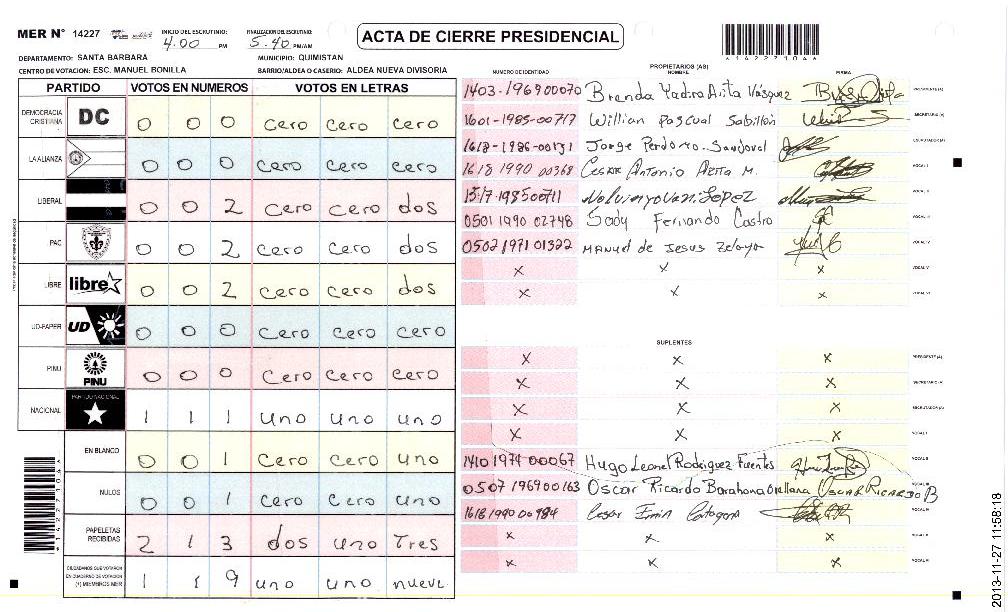 MER N° 14227
INICIO DEL ESCRUTINIO: 4:00 PM
FINALIZACION DEL ESCRUTINIO: 5:40 PM/AM
ACTA DE CIERRE PRESIDENCIAL
*1422710 4*
DEPARTAMENTO: SANTA BARBARA
MUNICIPIO: QUIMISTAN
CENTRO DE VOTACION: ESC. MANUEL BONILLA
BARRIO/ALDEA O CASERIO: ALDEA NUEVA DIVISORIA
PARTIDO VOTOS EN NUMEROS VOTOS EN LETRAS
DEMOCRACIA CRISTIANA DC 0 0 0 cero cero cero
LA ALIANZA 0 0 0 cero cero cero
LIBERAL 0 0 2 cero cero dos
PAC 0 0 2 cero cero dos
LIBRE libre 0 0 2 cero cero dos
UD-FAPER UD 0 0 0 cero cero cero
PINU PINU 0 0 0 cero cero cero
NACIONAL PARTIDO NACIONAL 1 1 1 uno uno uno
EN BLANCO 0 0 1 cero cero uno
NULOS 0 0 1 cero cero uno
PAPELETAS RECIBIDAS 2 1 3 dos uno Tres
CIUDADANOS QUE VOTARON EN CUADERNO DE VOTACION (+) MIEMBROS MER 1 1 9 uno uno nueve
PROPIETARIOS (AS)
NUMERO DE IDENTIDAD NOMBRE FIRMA
1403-196900070 Brenda Yadira Arita Vasquez PRESIDENTE (A)
1601-1985-00717 Willian Pascual Sabillon SECRETARIO (A)
1618-1986-00131 Jorge Perdomo Sandoval ESCRUTADOR (A)
1618 1990 00368 Cesar Antonio Arita M. VOCAL I
1517198500711 VOCAL II
0501 1990 02748 Sady Fernando Castro VOCAL III
0502 1971 01322 Manuel de Jesus Zelaya VOCAL IV
X X X VOCAL V
X X X VOCAL VI
SUPLENTES
X X X PRESIDENTE (A)
X X X SECRETARIO (A)
X X X ESCRUTADOR (A)
X X X VOCAL I
1410 1974 00067 Hugo Leonel Rodriguez Fuentes VOCAL II
0507 196900163 Oscar Ricardo Barahona Orellana Oscar Ricardo B VOCAL III
1618 1990 00984 Cesar Emin Cartagena VOCAL IV
X X X VOCAL V
X X X VOCAL VI
2013-11-27 11:58:18